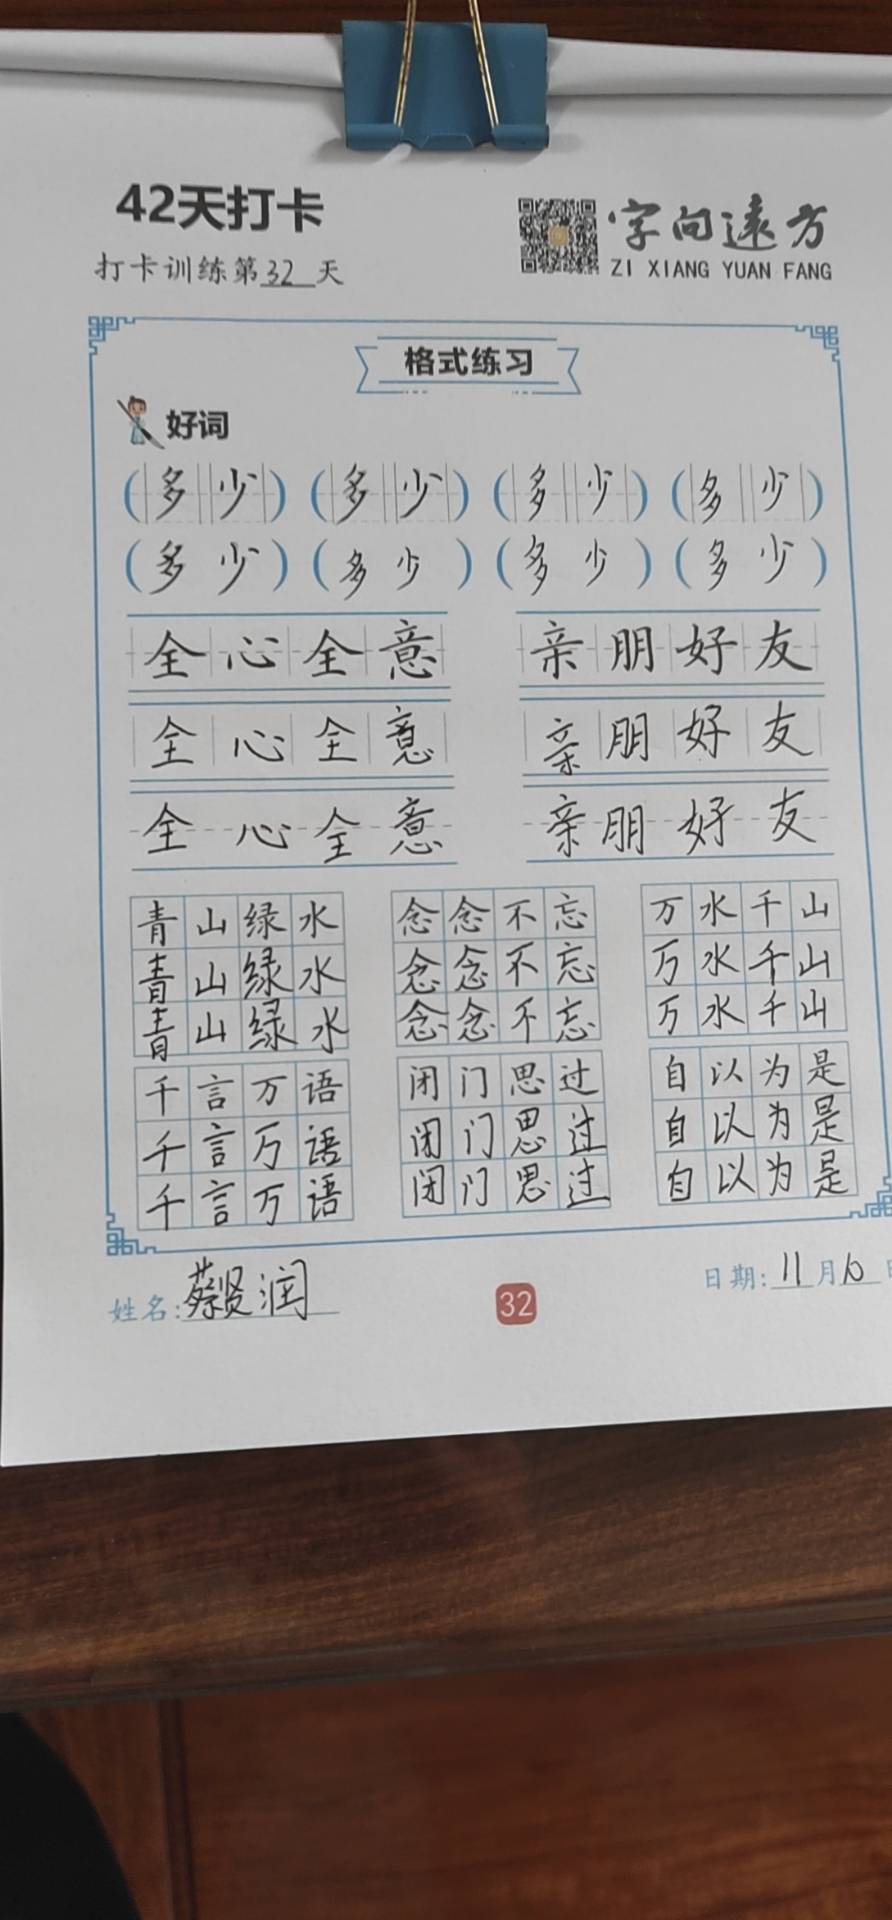 42天打卡
字向遠方
ZI XIANG YUAN FANG
打卡训练第32天
格式练习
好词
(多少) (多少) (多少) (多少)
(多少) (多少) (多少) (多少)
全心全意 亲朋好友
全心全意 亲朋好友
全心全意 亲朋好友
青山绿水 念念不忘 万水千山
青山绿水 念念不忘 万水千山
青山绿水 念念不忘 万水千山
千言万语 闭门思过 自以为是
千言万语 闭门思过 自以为是
千言万语 闭门思过 自以为是
姓名:蔡贤润 32 日期:11月10日